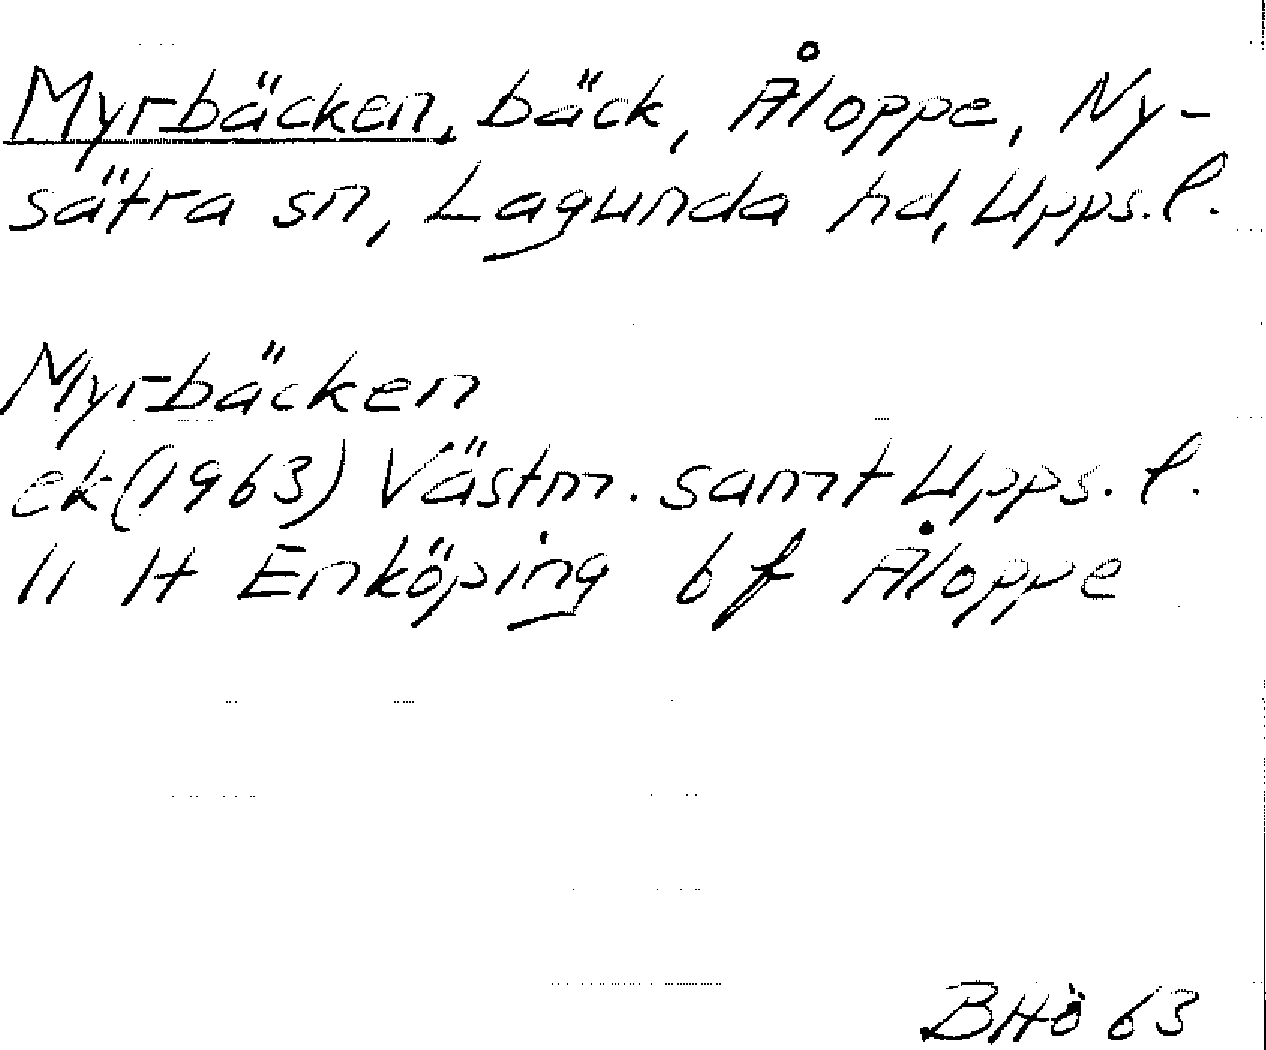 Myrbäcken, bäck, Åloppe, Ny-
sätra sn, Lagunda hd, Upps. l.
Myrbäcken
ek (1963) Västm. samt Upps. l.
11 H Enköping 6 f Åloppe
BHö 63